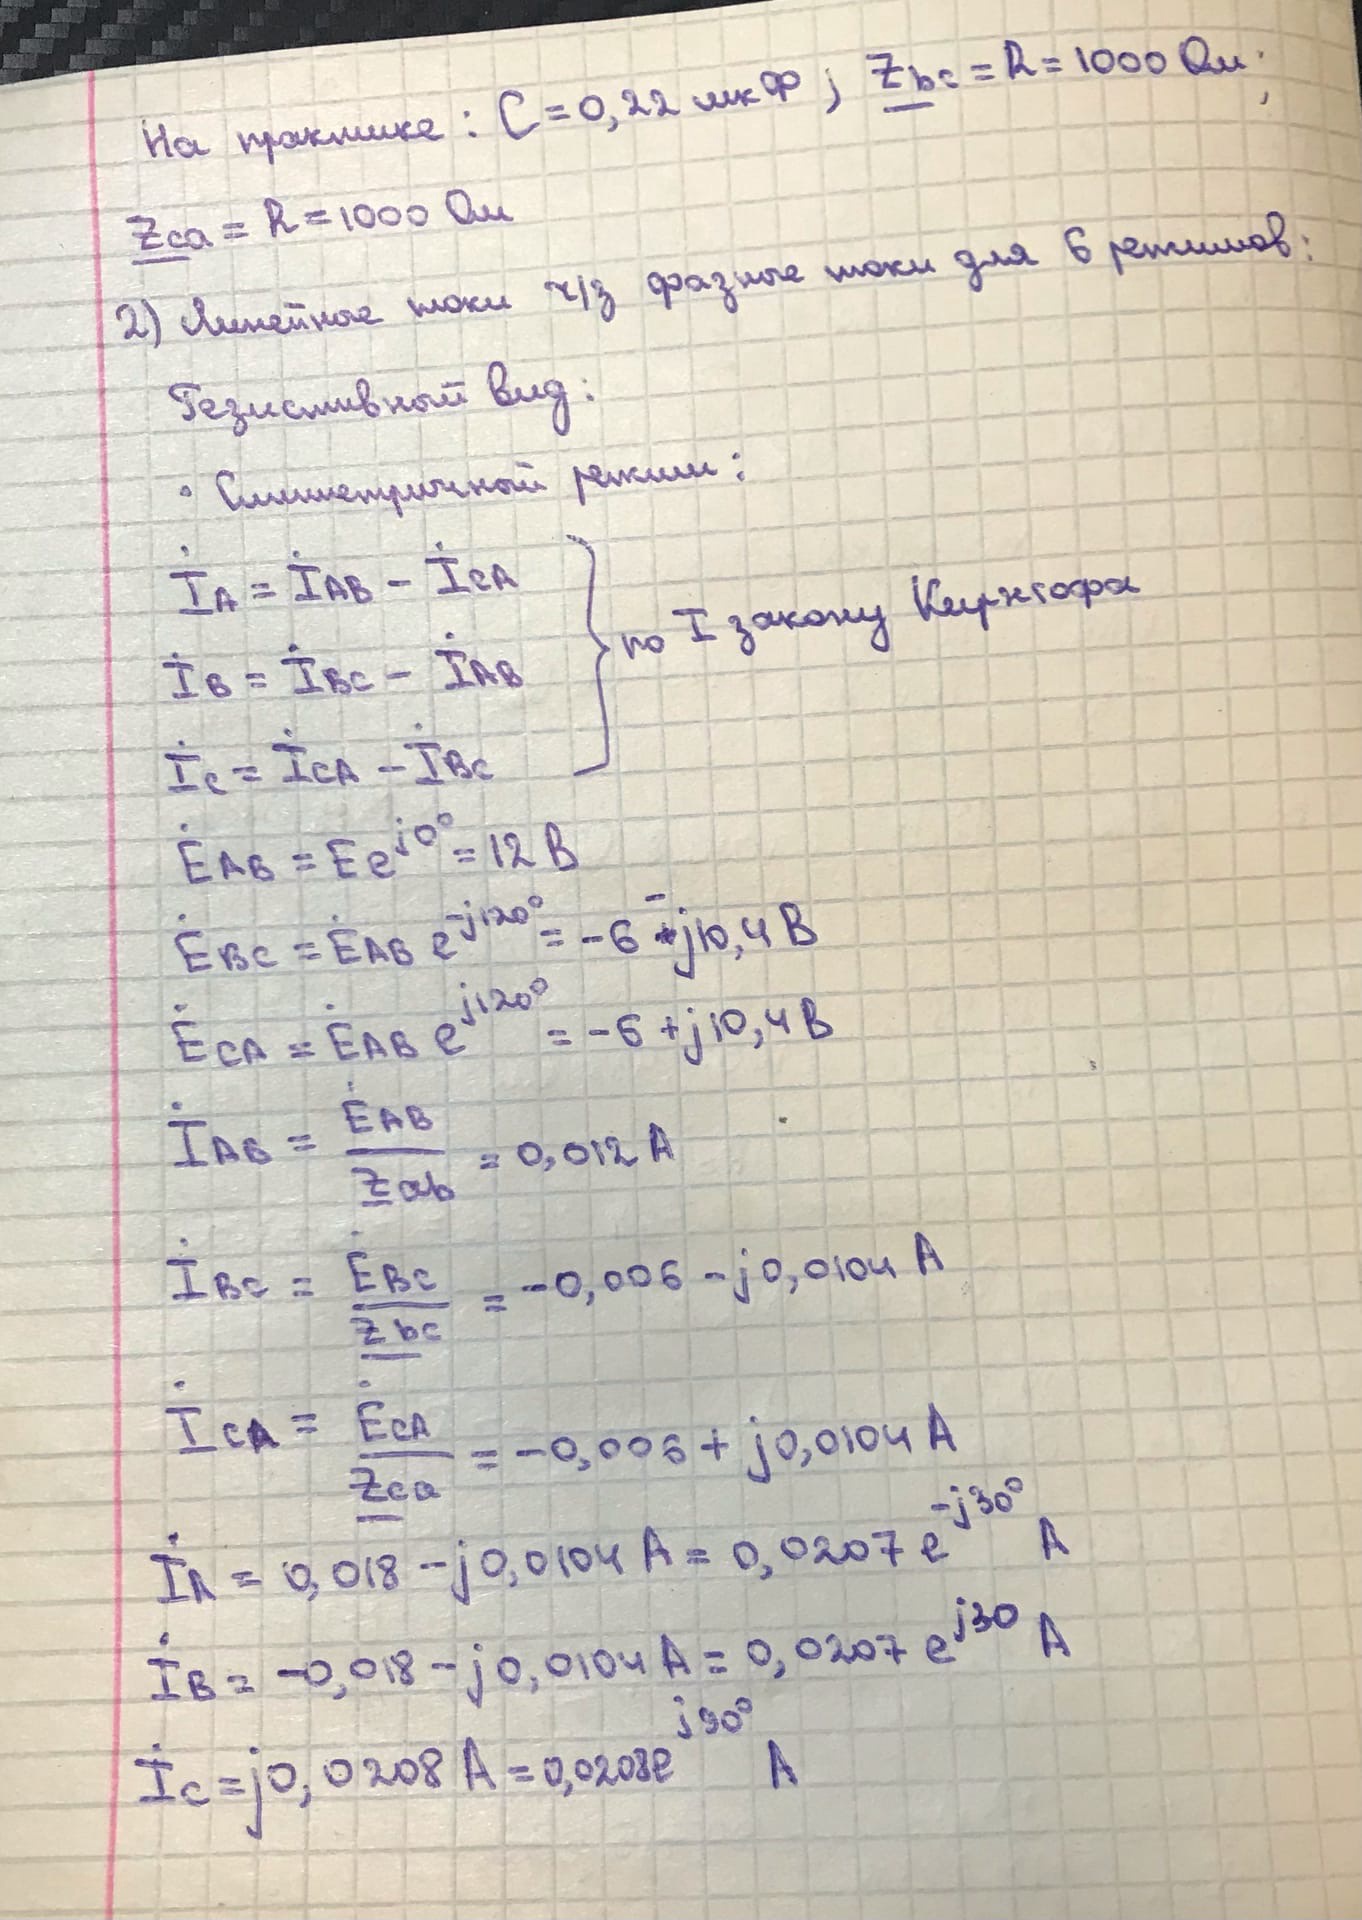 На практике: C = 0,22 мкФ; Zbc = R = 1000 Ом;
Zca = R = 1000 Ом
2) Линейные токи ч/з фазные токи для 6 режимов:
Резистивный вид:
• Симметричный режим:
İA = İAB - İCA
İB = İBC - İAB
İC = İCA - İBC
по I закону Кирхгофа
ĖAB = Ee^j0° = 12 В
ĖBC = ĖAB e^-j120° = -6 - j10,4 В
ĖCA = ĖAB e^j120° = -6 + j10,4 В
İAB = ĖAB / Zab = 0,012 А
İBC = ĖBC / Zbc = -0,006 - j0,0104 А
İCA = ĖCA / Zca = -0,006 + j0,0104 А
İA = 0,018 - j0,0104 А = 0,0207 e^-j30° А
İB = -0,018 - j0,0104 А = 0,0207 e^j30 А
İC = j0,0208 А = 0,0208e^j90° А